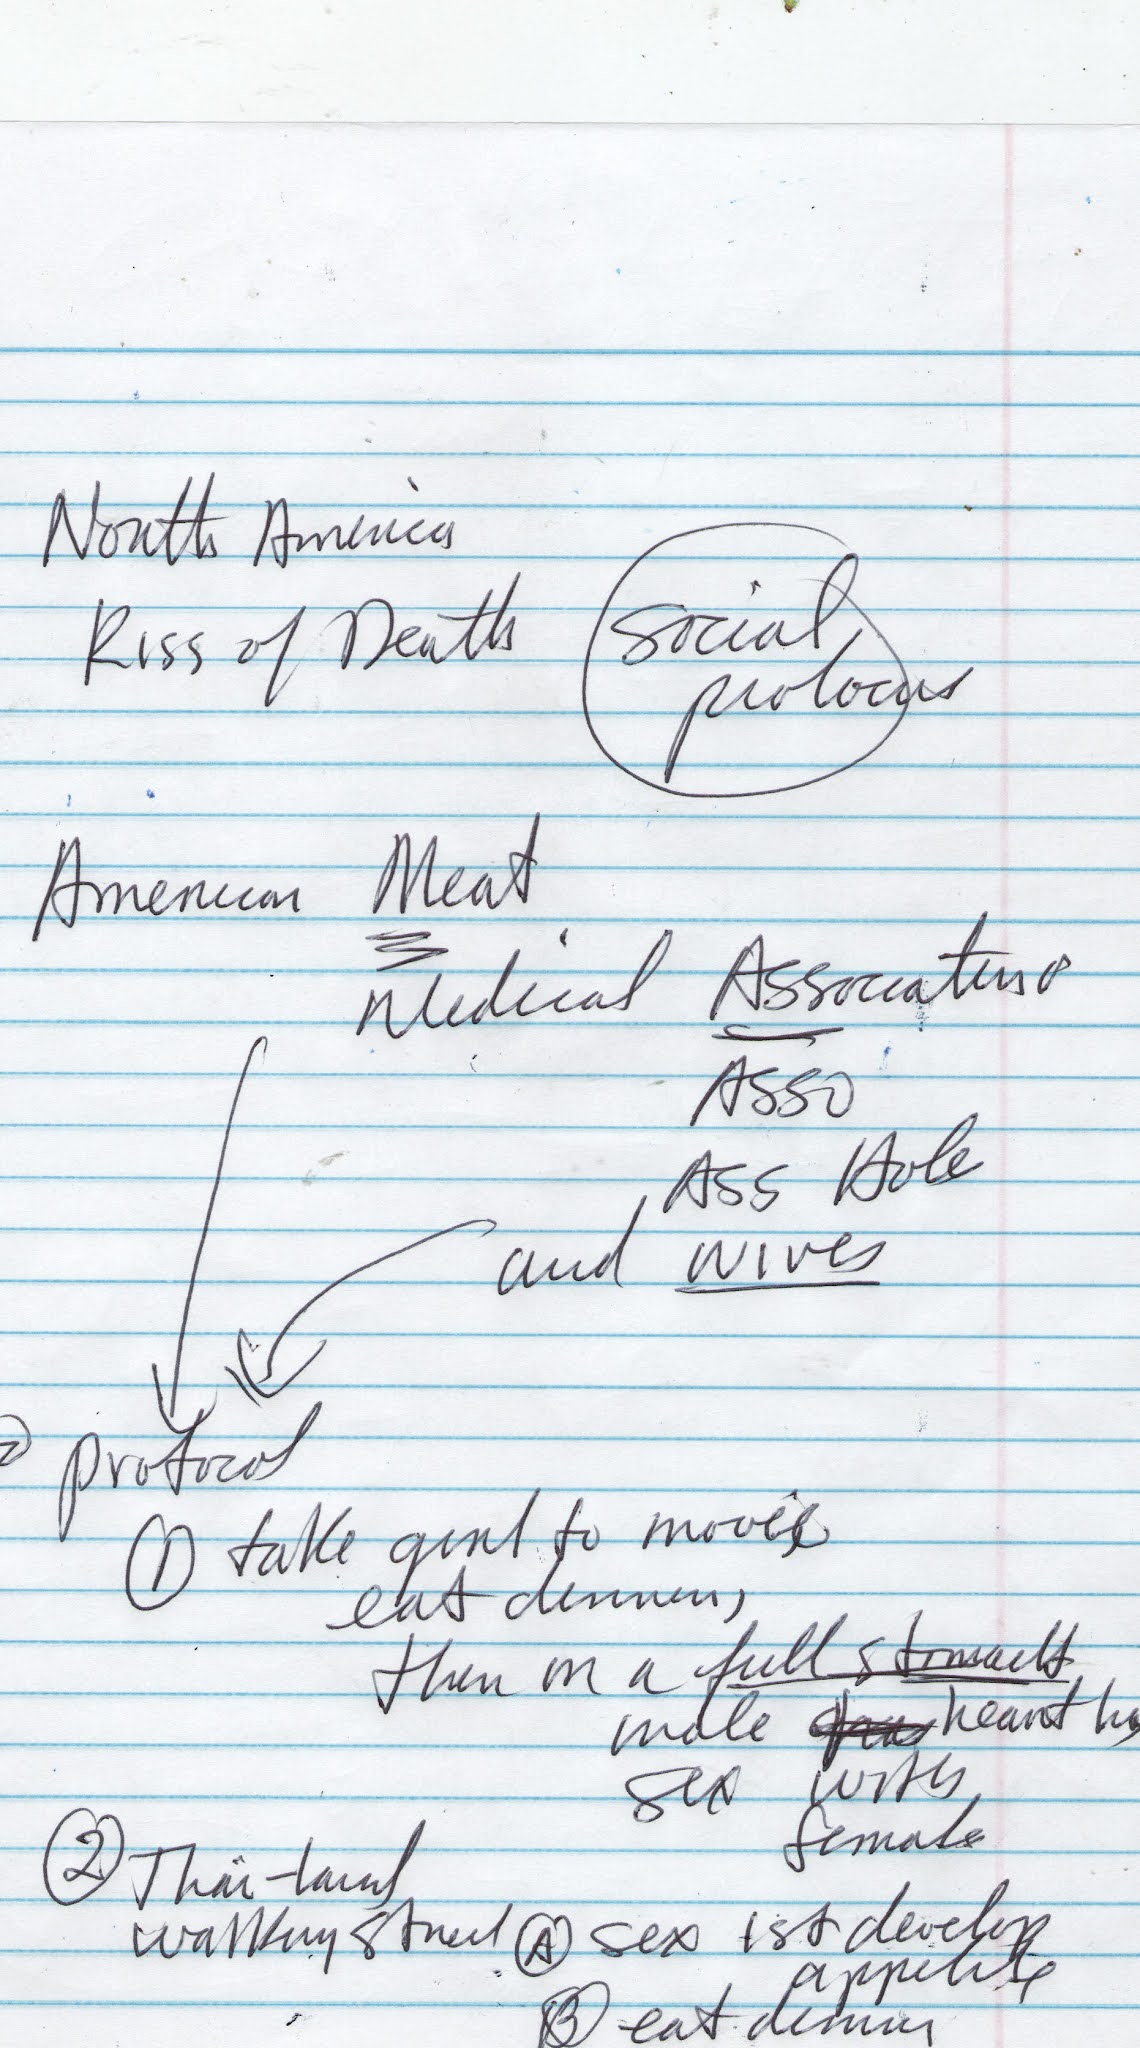 North America
Kiss of Death
social
protocols
American Meat
Medical Association
Asso
Ass Hole
and wives
protocol
① take girl to movie
eat dinner,
then on a full stomach
male heart has
sex with
female
② Thai-land
walking street Ⓐ sex 1st develop
appetite
Ⓑ eat dinner